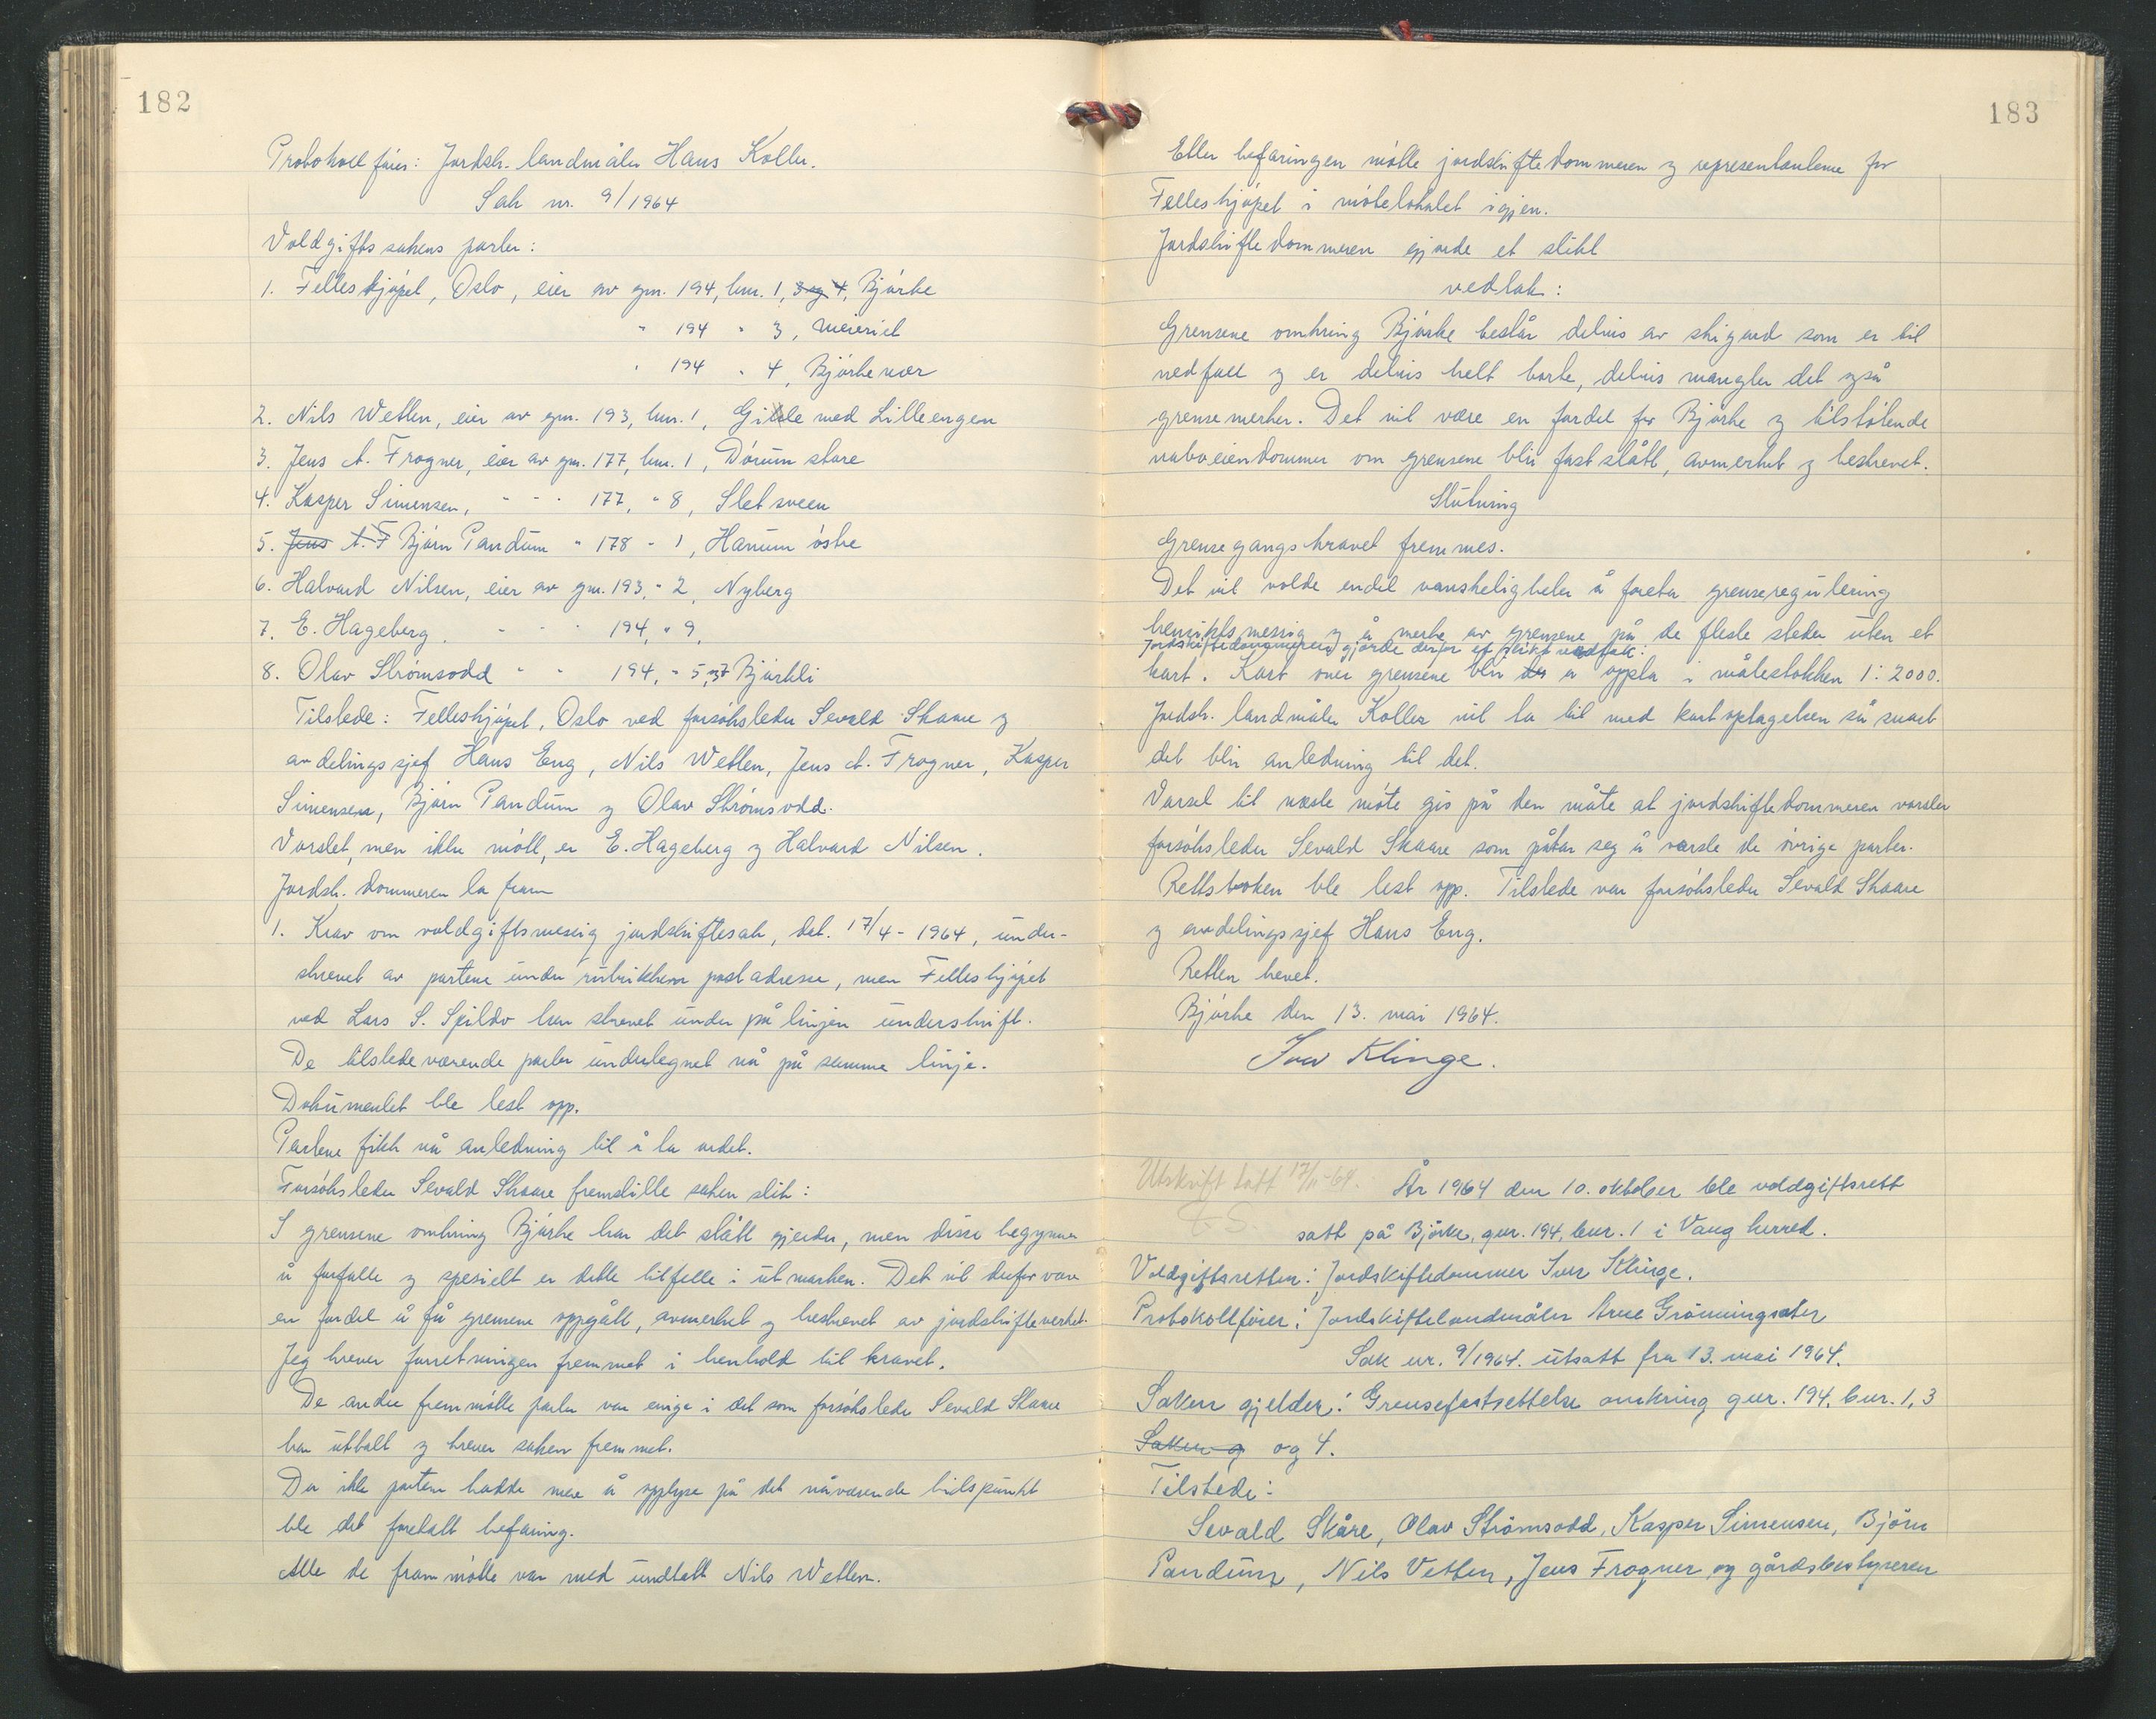 182
Protokollfører: Jordsk. landmåler Hans Koller.
Sak nr. 9/1964
Voldgiftssakens parter:
1. Felleskjøpet, Oslo, eier av gnr. 194, bnr. 1, 3 og 4, Bjørke
" 194 " 3, Meieriet
" 194 " 4, Bjørkenær
2. Nils Wetten, eier av gnr. 193, bnr. 1, Gille med Lilleengen
3. Jens A. Frogner, eier av gnr. 177, bnr. 1, Dørum store
4. Kasper Simensen, " - " 177, " 8, Sletsveen
5. Jens A. F Bjørn Pandum " 178 " 1, Hanum østre
6. Halvard Nilsen, eier av gnr. 193, " 2, Nyberg
7. E. Hageberg, " - " 194, " 9,
8. Olav Strømsodd " " 194, " 5, 37 Bjørkli
Tilstede: Felleskjøpet, Oslo ved forsøksleder Sevald Skaare og
avdelingssjef Hans Eng, Nils Wetten, Jens A. Frogner, Kasper
Simensen, Bjørn Pandum og Olav Strømsodd.
Varslet, men ikke møtt, er E. Hageberg og Halvard Nilsen.
Jordsk. dommeren la fram
1. Krav om voldgiftsmessig jordskiftesak, dat. 17/4 - 1964, under-
skrevet av partene under rubrikken postadresse, men Felleskjøpet
ved Lars S. Spildo har skrevet under på linjen underskrift.
De tilstedeværende parter undertegnet nå på samme linje.
Dokumentet ble lest opp.
Partene fikk nå anledning til å ta ordet.
Forsøksleder Sevald Skaare fremstilte saken slik:
I grensene omkring Bjørke har det stått gjerder, men disse begynner
å forfalle og spesielt er dette tilfelle i utmarken. Det vil derfor være
en fordel å få grensene oppgått, avmerket og beskrevet av jordskifteverket.
Jeg krever forretningen fremmet i henhold til kravet.
De andre fremmøtte parter var enige i det som forsøksleder Sevald Skaare
har uttalt og krever saken fremmet.
Da ikke partene hadde mere å opplyse på det nåværende tidspunkt
ble det foretatt befaring.
Alle de frammøtte var med undtatt Nils Wetten.
183
Etter befaringen møtte jordskiftedommeren og representantene for
Felleskjøpet i møtelokalet igjen.
Jordskiftedommeren gjorde et slikt
vedtak:
Grensene omkring Bjørke består delvis av skigard som er til
nedfall og er delvis helt borte, delvis mangler det også
grensemerker. Det vil være en fordel for Bjørke og tilstøtende
naboeiendommer om grensene blir fastslått, avmerket og beskrevet.
Slutning
Grensegangskravet fremmes.
Det vil volde endel vanskeligheter å foreta grenseregulering
hensiktsmessig og å merke av grensene på de fleste steder uten et
Jordskiftedommeren gjorde derfor et slikt vedtak:
kart. Kart over grensene blir å oppta i målestokken 1:2000.
Jordsk. landmåler Koller vil ta til med kartoptagelsen så snart
det blir anledning til det.
Varsel til neste møte gis på den måte at jordskiftedommeren varsler
forsøksleder Sevald Skaare som påtar seg å varsle de øvrige parter.
Rettsboken ble lest opp. Tilstede var forsøksleder Sevald Skaare
og avdelingssjef Hans Eng.
Retten hevet.
Bjørke den 13. mai 1964.
Iver Klinge.
Utskrift tatt 17/11-64.
År 1964 den 10. oktober ble voldgiftsrett
satt på Bjørke, gnr. 194, bnr. 1 i Vang herred.
Voldgiftsretten: Jordskiftedommer Iver Klinge.
Protokollfører: Jordskiftelandmåler Arne Grønningsæter
Sak nr. 9/1964. utsatt fra 13. mai 1964.
Saken gjelder: Grensefastsettelse omkring gnr. 194, bnr. 1, 3
Saken g og 4.
Tilstede:
Sevald Skåre, Olav Strømsodd, Kasper Simensen, Bjørn
Pandum, Nils Vetten, Jens Frogner og gårdsbestyreren